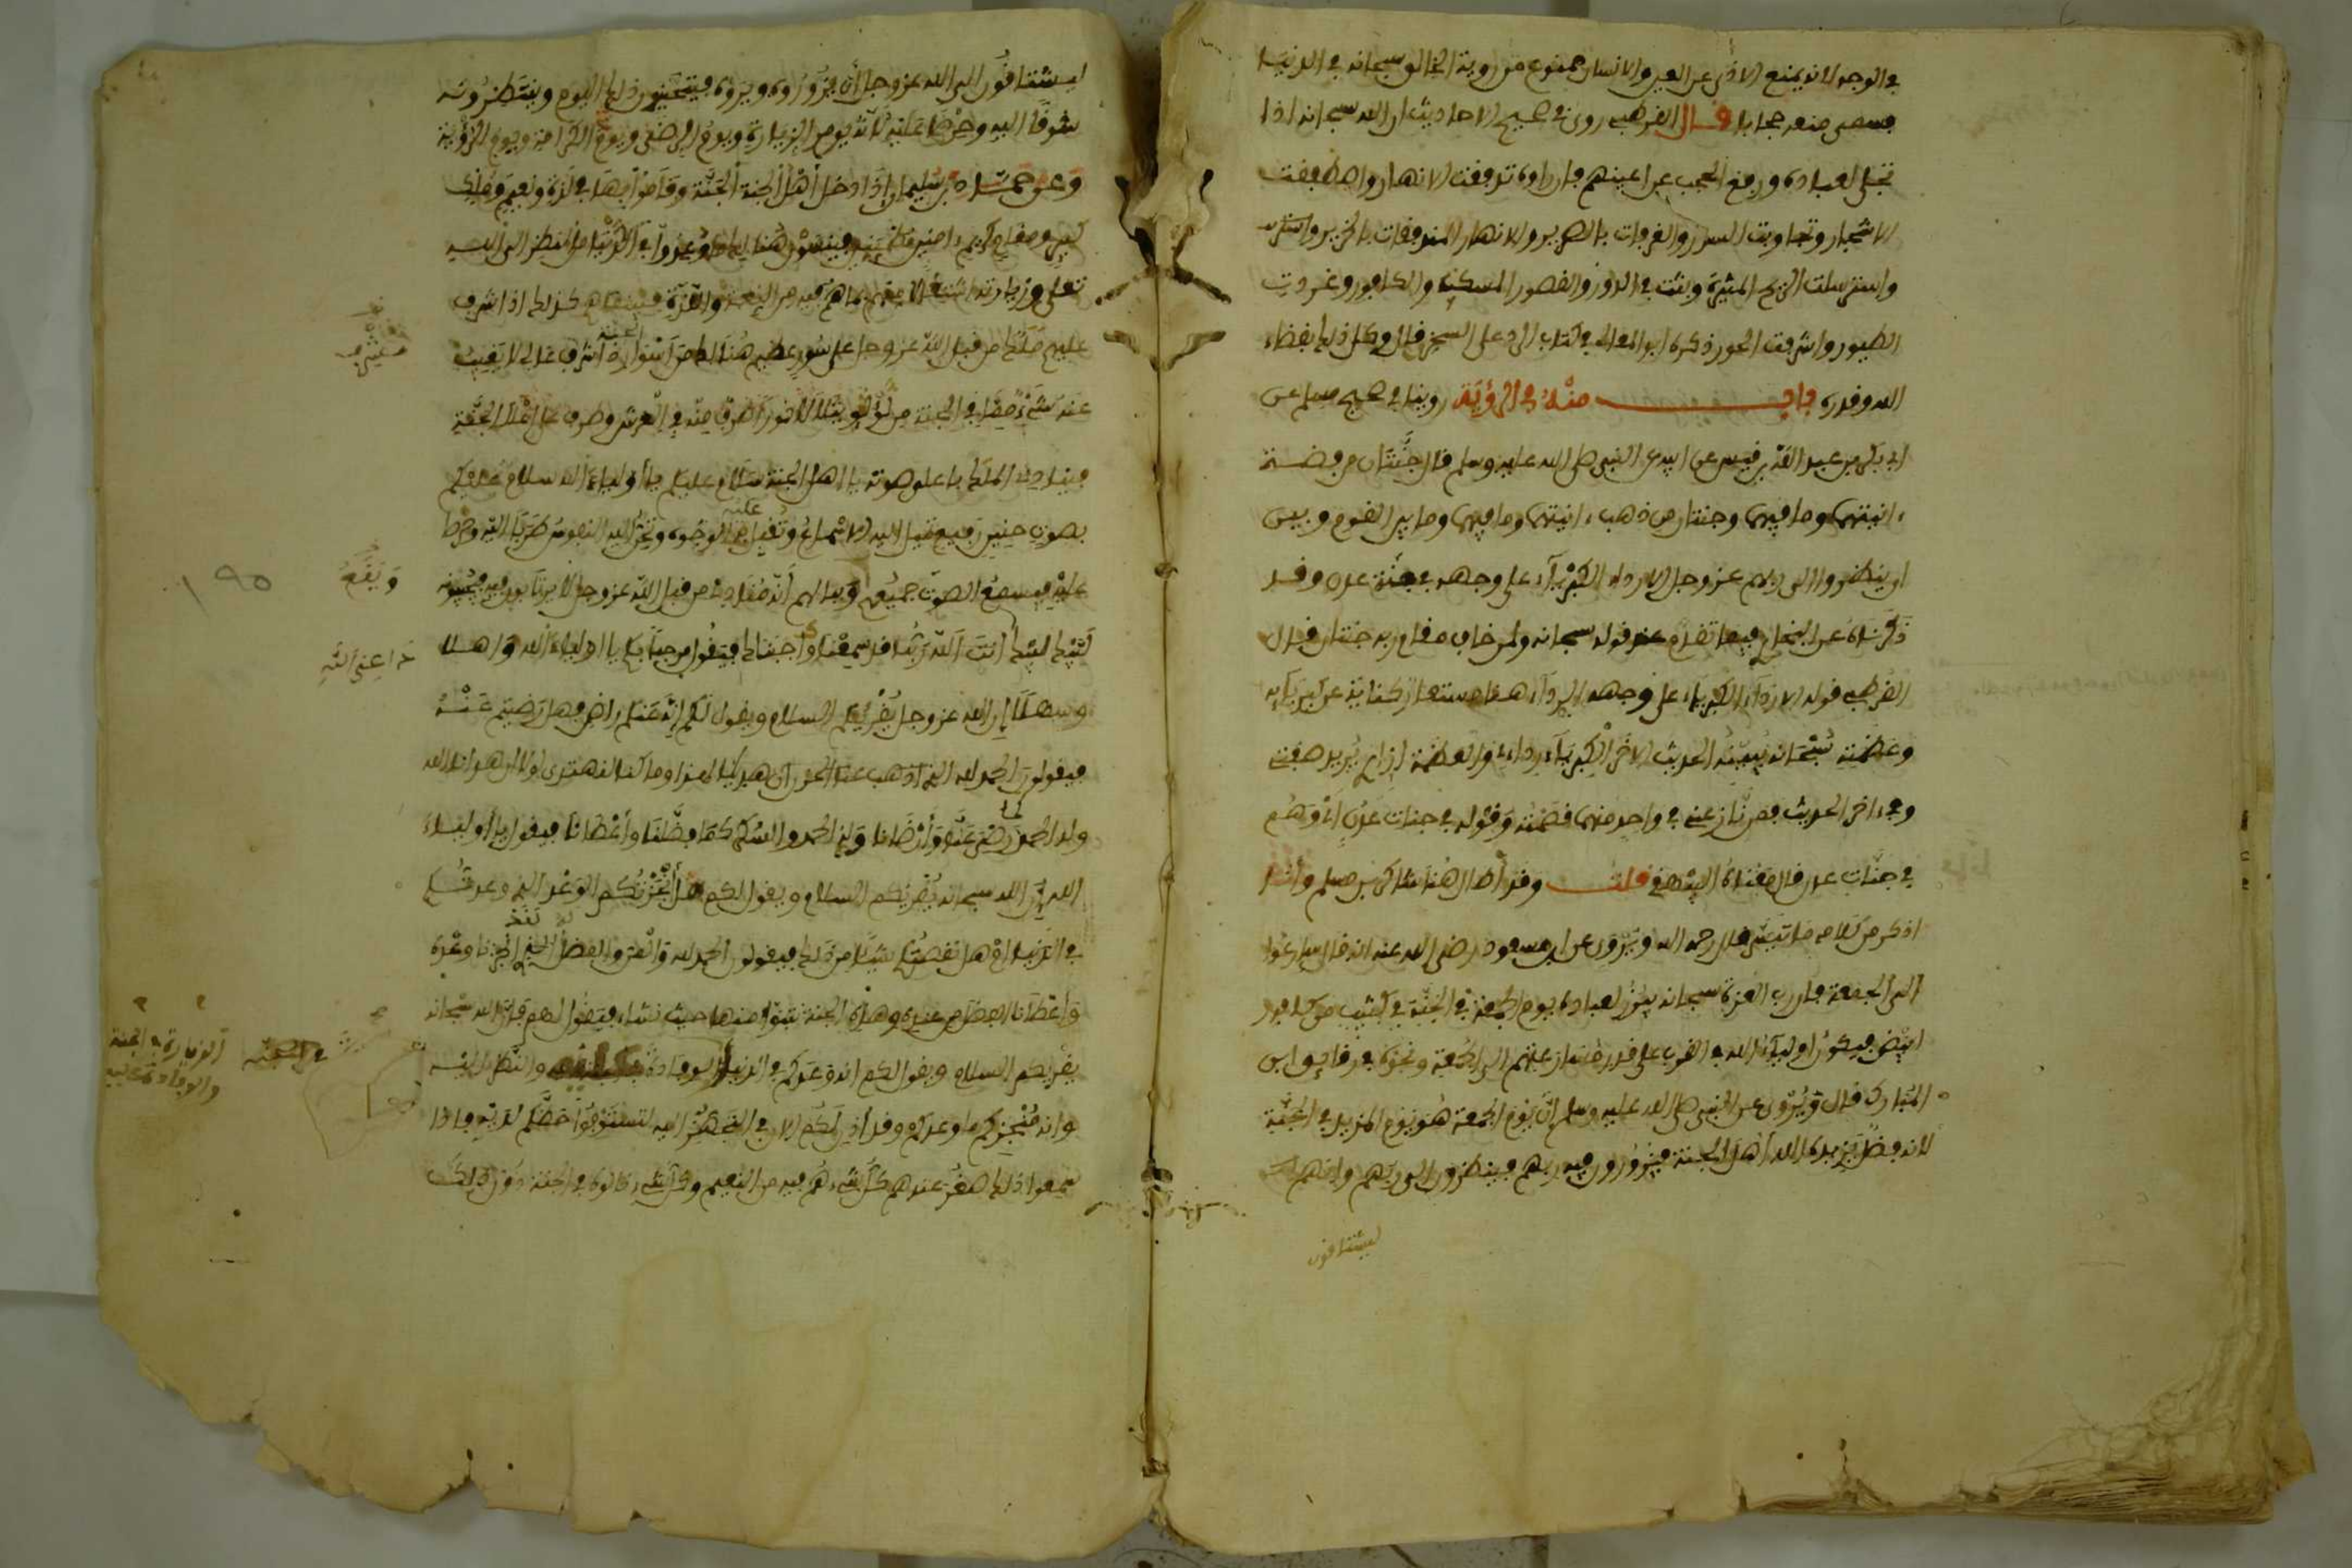 في الوجه لانه يمنع الاذى عن العين والانسان ممنوع من روية الخالق سبحانه في الدنيا
فسمى منعه حجابا قال القرطبي روى في صحيح الاحاديث ان الله سبحانه اذا
تجلى لعباده ورفع الحجب عن اعينهم فاذا راوه تدفقت الانهار واصطفقت
الاشجار وتجاوبت السرر والغرفات بالصرير والانهار المتدفقات بالخرير واسترسـ
واسترسلت الريح المثيرة وبثت في الدور والقصور المسك والكافور وغردت
الطيور واشرقت الحور ذكره ابو المعالي في كتاب الرد على السجزي قال وكل ذلك بقضاء
الله وقدره باب منه في الرؤية روينا في صحيح مسلم عن
ابي بكر بن عبد الله بن قيس عن ابيه عن النبي صلى الله عليه وسلم قال جنتان من فضة
ءانيتهما وما فيهما وجنتان من ذهب ءانيتهما وما فيهما وما بين القوم وبين
ان ينظروا الى ربهم عز وجل الا رداء الكبرياء على وجهه في جنة عدن وقد
ذكرناه عن البخاري فيما تقدم عند قوله سبحانه ولمن خاف مقام ربه جنتان قال
القرطبي قوله الا رداء الكبرياء على وجهه الرداء هنا مستعار كناية عن كبريائه
وعظمته سبحانه يبينه الحديث الاخر الكبرياء رداءي والعظمة ازاري يريد صفتي
وفي ءاخر الحديث فمن نازعني في واحد منهما قصمته وقوله في جنات عدن اي وهم
في جنات عدن قال معناه البيهقي قلت وقد اطال هنا شاكر بن مسلم وانا
اذكر من كلامه ما تيسر قال رحمه الله ويروى عن ابن مسعود رضي الله عنه انه قال سارعوا
الى الجمعة فان رب العزة سبحانه يبرز لعباده يوم الجمعة في الجنة في كثيب من كافور
ابيض فيكون اولياء الله في القرب على قدر مسارعتهم الى الجمعة ونحوه في رقايق ابن
المبارك قال ويروى عن النبي صلى الله عليه وسلم ان يوم الجمعة هو يوم المزيد في الجنة
لانه فضل يزيده الله اهل الجنة فيزورون فيه ربهم فينظرون الى ربهم وانهم
ليشتاقون
ليشتاقون الى الله عز وجل أن يزوروه ويروه فيتحينون ذلك اليوم وينتظرونه
شوقا اليه وحرصا عليه لانه يوم الزيارة ويوم الرضى ويوم الكرامة ويوم الرؤية
وعن حماد بن سليمان اذا دخل أهل الجنة الجنة وقاموا فيها في لذة ونعيم وملك
كبير ومقام كريم ءامنين مطمئنين فينسون هنالك ما وعدوا في الدنيا من النظر الى الله
تعلى وزيارته اشتغالا منهم بما هم فيه من النعمة واللذة فبينما هم كذلك اذ اشرف
عليهم ملك من قبل الله عز وجل على سور عظيم هنالك من اسوار الجنة أشرف عال لا يغيب
عنه شيء مما في الجنة من لؤلؤ يتلألأ نورا طرف منه في العرش وطرف على اعلا الجنة
فينادي الملك باعلى صوته يا اهل الجنة سلام عليكم يا أولياء الله سلام عليكم
بصوت حنين رفيع تميل اليه الاسماع وتقبل عليه الوجوه وتحن اليه النفوس طربا اليه وحرصا
عليه فيسمع الصوت جميعهم وبدا لهم أنه مناد من قبل الله عز وجل لا يرتابون فيه فيجيبونه
لبيك لبيك أنت داعي الله ربنا قد سمعنا وأجبنا فيقول مرحبا بكم يا اولياء الله وأهلا
وسهلا إن الله عز وجل يقريكم السلام ويقول لكم إنه عنكم راض فهل رضيتم عنه
فيقولون الحمد لله الذي أذهب عنا الحزن الذي هدانا لهذا وما كنا لنهتدي لولا ان هدانا الله
وله الحمد كما رضي عنا وأرضانا وله الحمد والشكر كما فضلنا وأعطانا فيقول يا أولياء
الله إن الله سبحانه يقريكم السلام ويقول لكم هل أنجزتكم الوعد الذي وعدتكم
في الدنيا او هل نقصتكم شيئا من ذلك فيقولون الحمد لله والمن والفضل لقد انجزنا وعده
وأعطانا الفضل من عنده وهذه الجنة نتبوا منها حيث نشاء فيقول لهم فإن الله سبحانه
يقريكم السلام ويقول لكم انه وعدكم في الدنيا والنظر اليه
وانه منجزكم ما وعدكم وقد أذن لكم الان في اليه لتستوفوا حظكم لديه فاذا
سمعوا ذلك صغر عندهم كل شيء هم فيه من النعيم وكل شيء نالوه في الجنة دون ذلك
ويقع
داعي الله
١٩٥
الزيارة في الجنة
والوفادة عليه
في الجنة